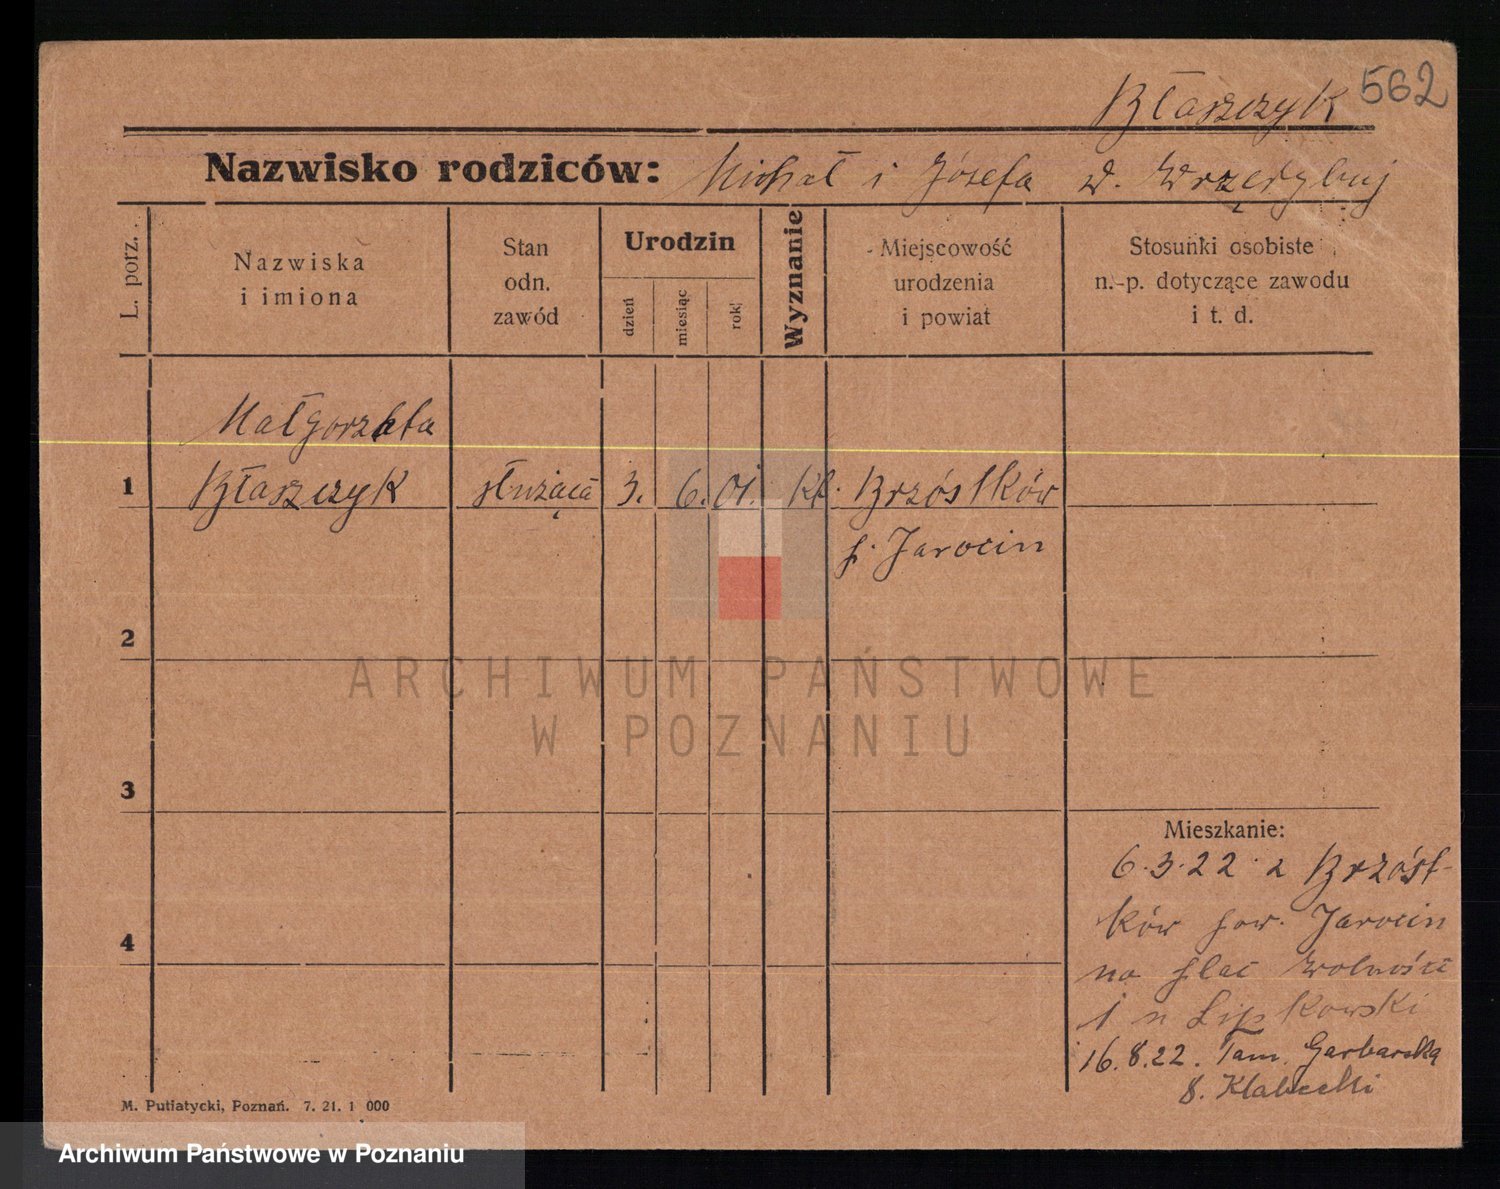 562
Błaszczyk
Nazwisko rodziców: Michał i Józefa d.
L. porz.
Nazwiska
i imiona
Stan
odn.
zawód
Urodzin
dzień
miesiąc
rok
Wyznanie
Miejscowość
urodzenia
i powiat
Stosunki osobiste
n.-p. dotyczące zawodu
i t. d.
Małgorzata
1 Błaszczyk służąca 3. 6. 01. kt. Brzóstków
p. Jarocin
2
3
4
Mieszkanie:
6.3.22 z Brzóst-
ków pow. Jarocin
na plac Wolności
1 n Lipkowski
16.8.22. Tam. Garbarska
8.
M. Putiatycki, Poznań. 7. 21. 1 000
ARCHIWUM PAŃSTWOWE
W POZNANIU
Archiwum Państwowe w Poznaniu